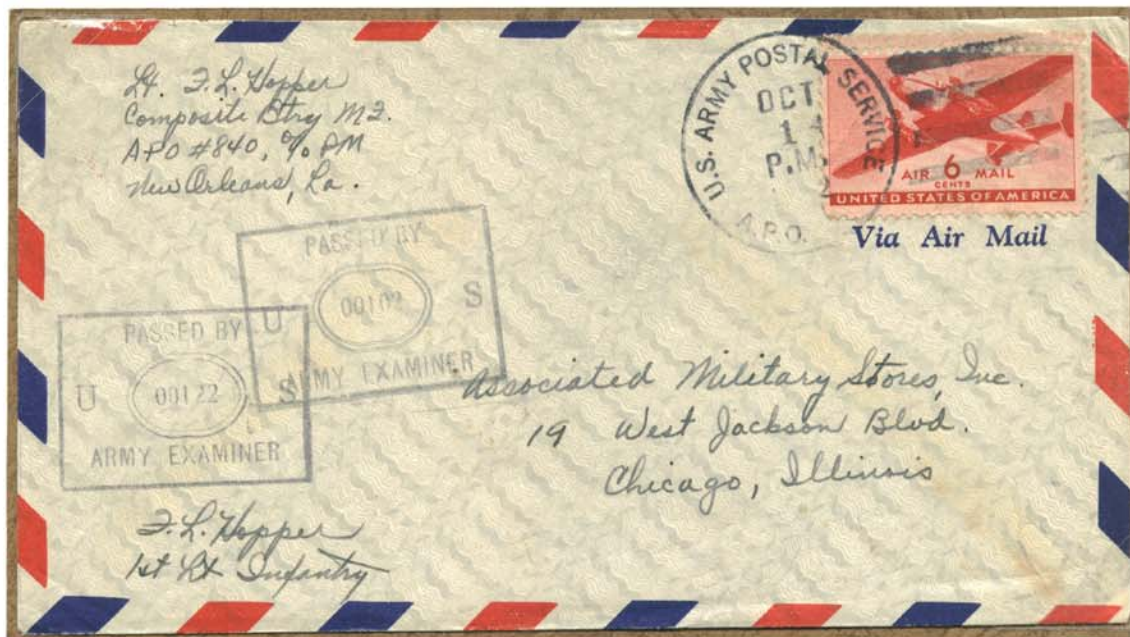 Lt. F. L. Hopper
Composite Btry M2.
APO #840, c/o PM
New Orleans, La.
U.S. ARMY POSTAL SERVICE
OCT
1
P.M.
2
A.P.O.
AIR 6 MAIL
CENTS
UNITED STATES OF AMERICA
Via Air Mail
PASSED BY
U 00102 S
ARMY EXAMINER
PASSED BY
U 00122 S
ARMY EXAMINER
Associated Military Stores, Inc.
19 West Jackson Blvd.
Chicago, Illinois
F. L. Hopper
1st Lt Infantry